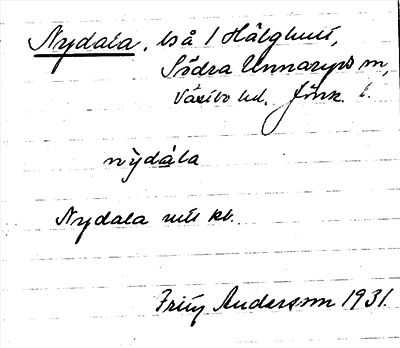 Nydala, bså / Hälghult,
Södra Unnaryds sn,
Västbo hd. Jönk. l.
nỳdála
Nydala uts kt.
Friz Andersson 1931.